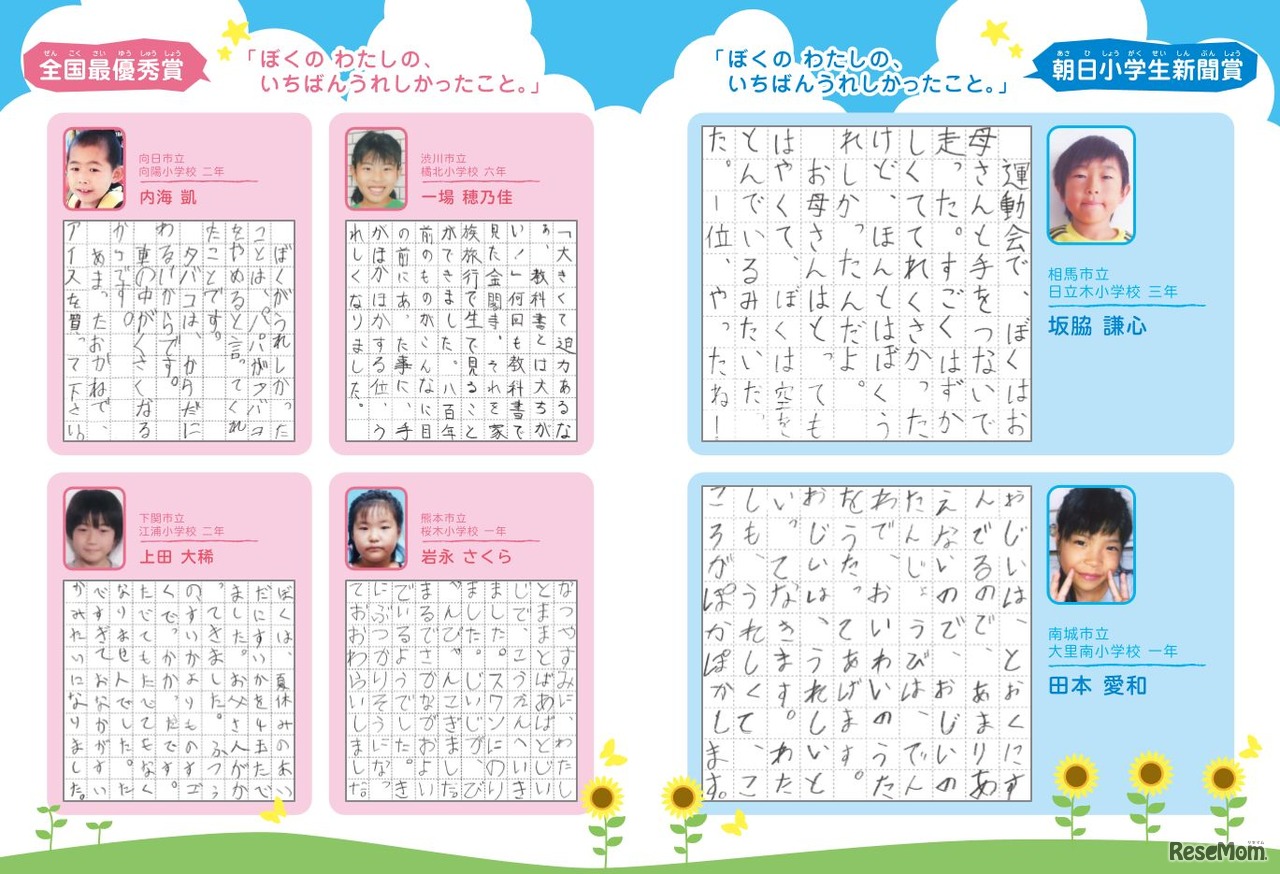 ぜん こく さい ゆう しゅう しょう
全国最優秀賞
「ぼくの わたしの、
いちばんうれしかったこと。」
向日市立
向陽小学校 二年
内海 凱
ぼくがうれしかった
ことは、パパがタバコ
をやめると言ってくれ
たことです。
タバコは、からだに
わるいからです。
車の中がくさくなる
からです。
あまったおかねで、
アイスを買って下さい。
渋川市立
橘北小学校 六年
一場 穂乃佳
「大きくて迫力あるな
ぁ、教科書とは大ちが
い！」何回も教科書で
見た金閣寺。それを家
族旅行で生で見ること
ができました。八百年
前のものがこんなに目
の前にあった事に、手
がぽかぽかする位、う
れしくなりました。
下関市立
江浦小学校 二年
上田 大稀
ぼくは、夏休みのあい
だにすいかを4玉たべ
ました。お父さんがか
ってきました。ふつう
のすいかよりものすご
くでっかかったです。
たべてもたべてもなく
なりませんでした。た
べすぎておなかがすい
かみたいになりました。
熊本市立
桜木小学校 一年
岩永 さくら
なつやすみに、わたし
とままとばあばとじい
じで、こうえんへいき
ました。スワンにのり
ました。じいじが、
こぎました。
まるでさかながおよい
でいるようでした。き
にぶつかりそうになっ
ておおわらいしました。
あさ ひ しょう がく せい しん ぶん しょう
朝日小学生新聞賞
「ぼくの わたしの、
いちばんうれしかったこと。」
相馬市立
日立木小学校 三年
坂脇 謙心
運動会で、ぼくはお
母さんと手をつないで
走った。すごくはずか
しくててれくさかった
けど、ほんとはぼくう
れしかったんだよ。
お母さんはとっても
はやくて、ぼくは空を
とんでいるみたいだっ
た。一位、やったね！
南城市立
大里南小学校 一年
田本 愛和
おじいは、とおくにす
んでるので、あまりあ
えないので、おじいの
たんじょうびは、でん
わで、おいわいのうた
をうたってあげます。
おじいは、うれしいと
いってなきます。わた
しも、うれしくて、こ
ころがぽかぽかします。
リセマム
ReseMom